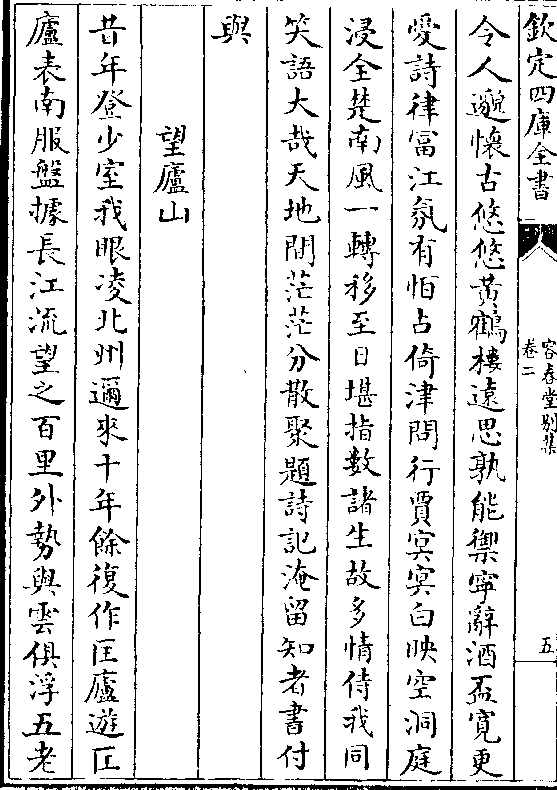 欽定四庫全書
容春堂別集
卷二
五
令人邈懷古悠悠黃鶴樓遠思孰能禦寧辭酒盃寬更
愛詩律富江氛有怕占倚津問行賈寞寞白映空洞庭
浸全楚南風一轉移至日堪指數諸生故多情侍我同
笑語大哉天地間茫茫分散聚題詩記淹留知者書付
與
望廬山
廿年登少室我眼凌北州邇來十年餘復作匡廬遊匡
廬表南服盤據長江流望之百里外勢與雲俱浮五老